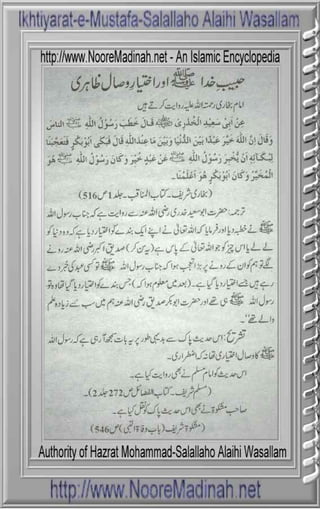 Ikhtiyarat-e-Mustafa-Salallaho Alaihi Wasallam
http://www.NooreMadinah.net - An Islamic Encyclopedia
حبیب خدا ﷺ اور اختیار وصال ظاہری
امام بخاری رحمۃ اللہ علیہ روایت کرتے ہیں
عَنْ اَبِي سَعِيْدِ الْخُدْرِيّ قَالَ خَطَبَ رَسُوْلُ اللّٰهِ ﷺ النَّاسَ
وَقَالَ اِنَّ اللّٰهَ خَيَّرَ عَبْدًا بَيْنَ الدُّنْيَا وَبَيْنَ مَا عِنْدَ اللّٰهِ قَالَ فَبَكَى اَبُوْبَكْرٍ فَتَعَجَّبْنَا
لِبُكَائِهِ اَنْ يُّخْبِرَ رَسُوْلُ اللّٰهِ ﷺ عَنْ عَبْدٍ خُيِّرَ وَكَانَ رَسُوْلُ اللّٰهِ ﷺ هُوَ
الْمُخَيَّرُ وَكَانَ اَبُوْبَكْرٍ هُوَ اَعْلَمُنَا۔
(بخاری شریف۔ کتاب المناقب۔ جلد 1 ص 516)
ترجمہ: حضرت ابوسعید خدری رضی اللہ عنہ سے روایت ہے کہ جناب رسول اللہ
ﷺ نے خطبہ دیا اور فرمایا کہ اللہ تعالیٰ نے اپنے ایک بندے کو اختیار دیا ہے کہ وہ دنیا کو
لے لے یا اس چیز کو جو اللہ تعالیٰ کے پاس ہے (یہ سن کر) صدیق اکبر رضی اللہ عنہ رونے
لگے تو ہم کو ان کے رونے پر بڑا تعجب ہوا کہ جناب رسول اللہ ﷺ تو کسی عبد کی خبر دے
رہے ہیں جسے اختیار دیا گیا ہے۔ (بعد میں معلوم ہوا کہ) جس بندے کو اختیار دیا گیا تھا وہ تو
رسول اللہ ﷺ ہی تھے اور حضرت ابوبکر صدیق رضی اللہ عنہ ہم میں سب سے زیادہ علم
والے تھے"۔
تشریح: اس حدیث پاک سے بدیہی طور پر یہ بات سمجھ آ رہی ہے کہ رسول اللہ
ﷺ کا وصال اختیاری تھا نہ کہ اضطراری۔
اس حدیث کو امام مسلم نے بھی روایت کیا ہے۔
(مسلم شریف۔ کتاب الفضائل ص 272 جلد 2)۔
صاحب مشکوٰۃ نے بھی اس حدیث پاک کو نقل کیا ہے۔
(مشکوٰۃ شریف (باب وفاۃ النبی) ص 546)
Authority of Hazrat Mohammad-Salallaho Alaihi Wasallam
http://www.NooreMadinah.net